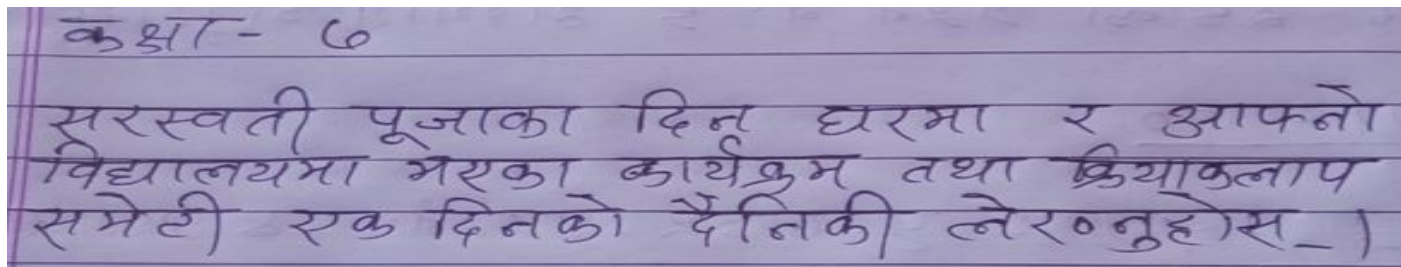 कक्षा - ७
सरस्वती पूजाका दिन घरमा र आफ्नो
विद्यालयमा भएका कार्यक्रम तथा क्रियाकलाप
समेटी एक दिनको दैनिकी लेख्नुहोस् ।